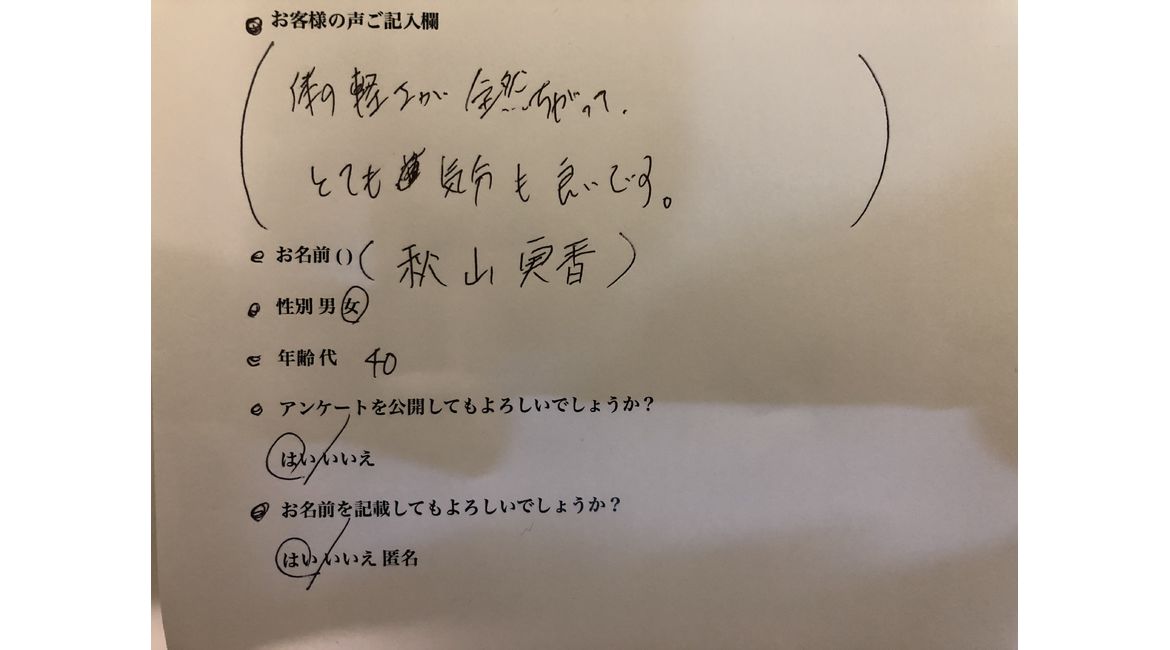 お客様の声ご記入欄
体の軽さが全然ちがって、
とても気分も良いです。
お名前()(秋山実香)
性別 男 女
年齢 代 40
アンケートを公開してもよろしいでしょうか?
はい いいえ
お名前を記載してもよろしいでしょうか?
はい いいえ 匿名